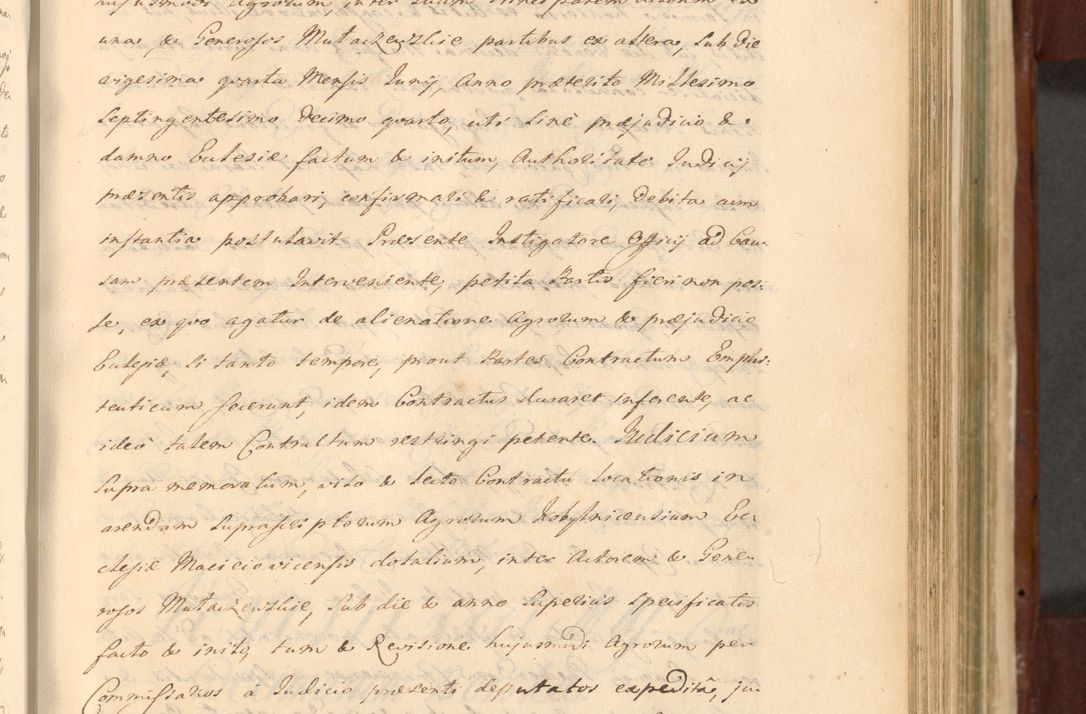 hujusmodi Agrorum, inter suum Principalem actorem ex
una & Generosos Mutaczewskie partibus ex altera, sub die
vigesima quarta Mensis Junij, Anno præterito Millesimo
Septingentesimo decimo quarto, uti sinè præjudicio &
damno Eclesiæ factum & initum, Authoritate Judicij
præsentis approbari, confirmari & ratificari, debita cum
instantia postulavit. Præsente Instigatore Officij ad Cau-
sam præsentem Interveniente, petita Partis fieri non pos:
se, ex quo agatur de alienatione Agrorum & præjudicio
Eclesiæ, si tanto tempore, prout Partes Contractum Emphi:
teuticum fecerunt, idem Contractus duraret inferente, ac
ideò talem Contractum restringi petente. Judicium
supra memoratum, viso & lecto Contractu Locationis in
arendam suprascriptorum Agrorum Kobylnicensium Ec-
clesiæ Macieiovicensis dotalium, inter Actorem & Gene-
rosos Mutaczewskie, sub die & anno superius specificatis
facto & inito, tum & Revisione hujusmodi Agrorum per
Commissarios à Judicio præsenti deputatos expeditâ, ju-